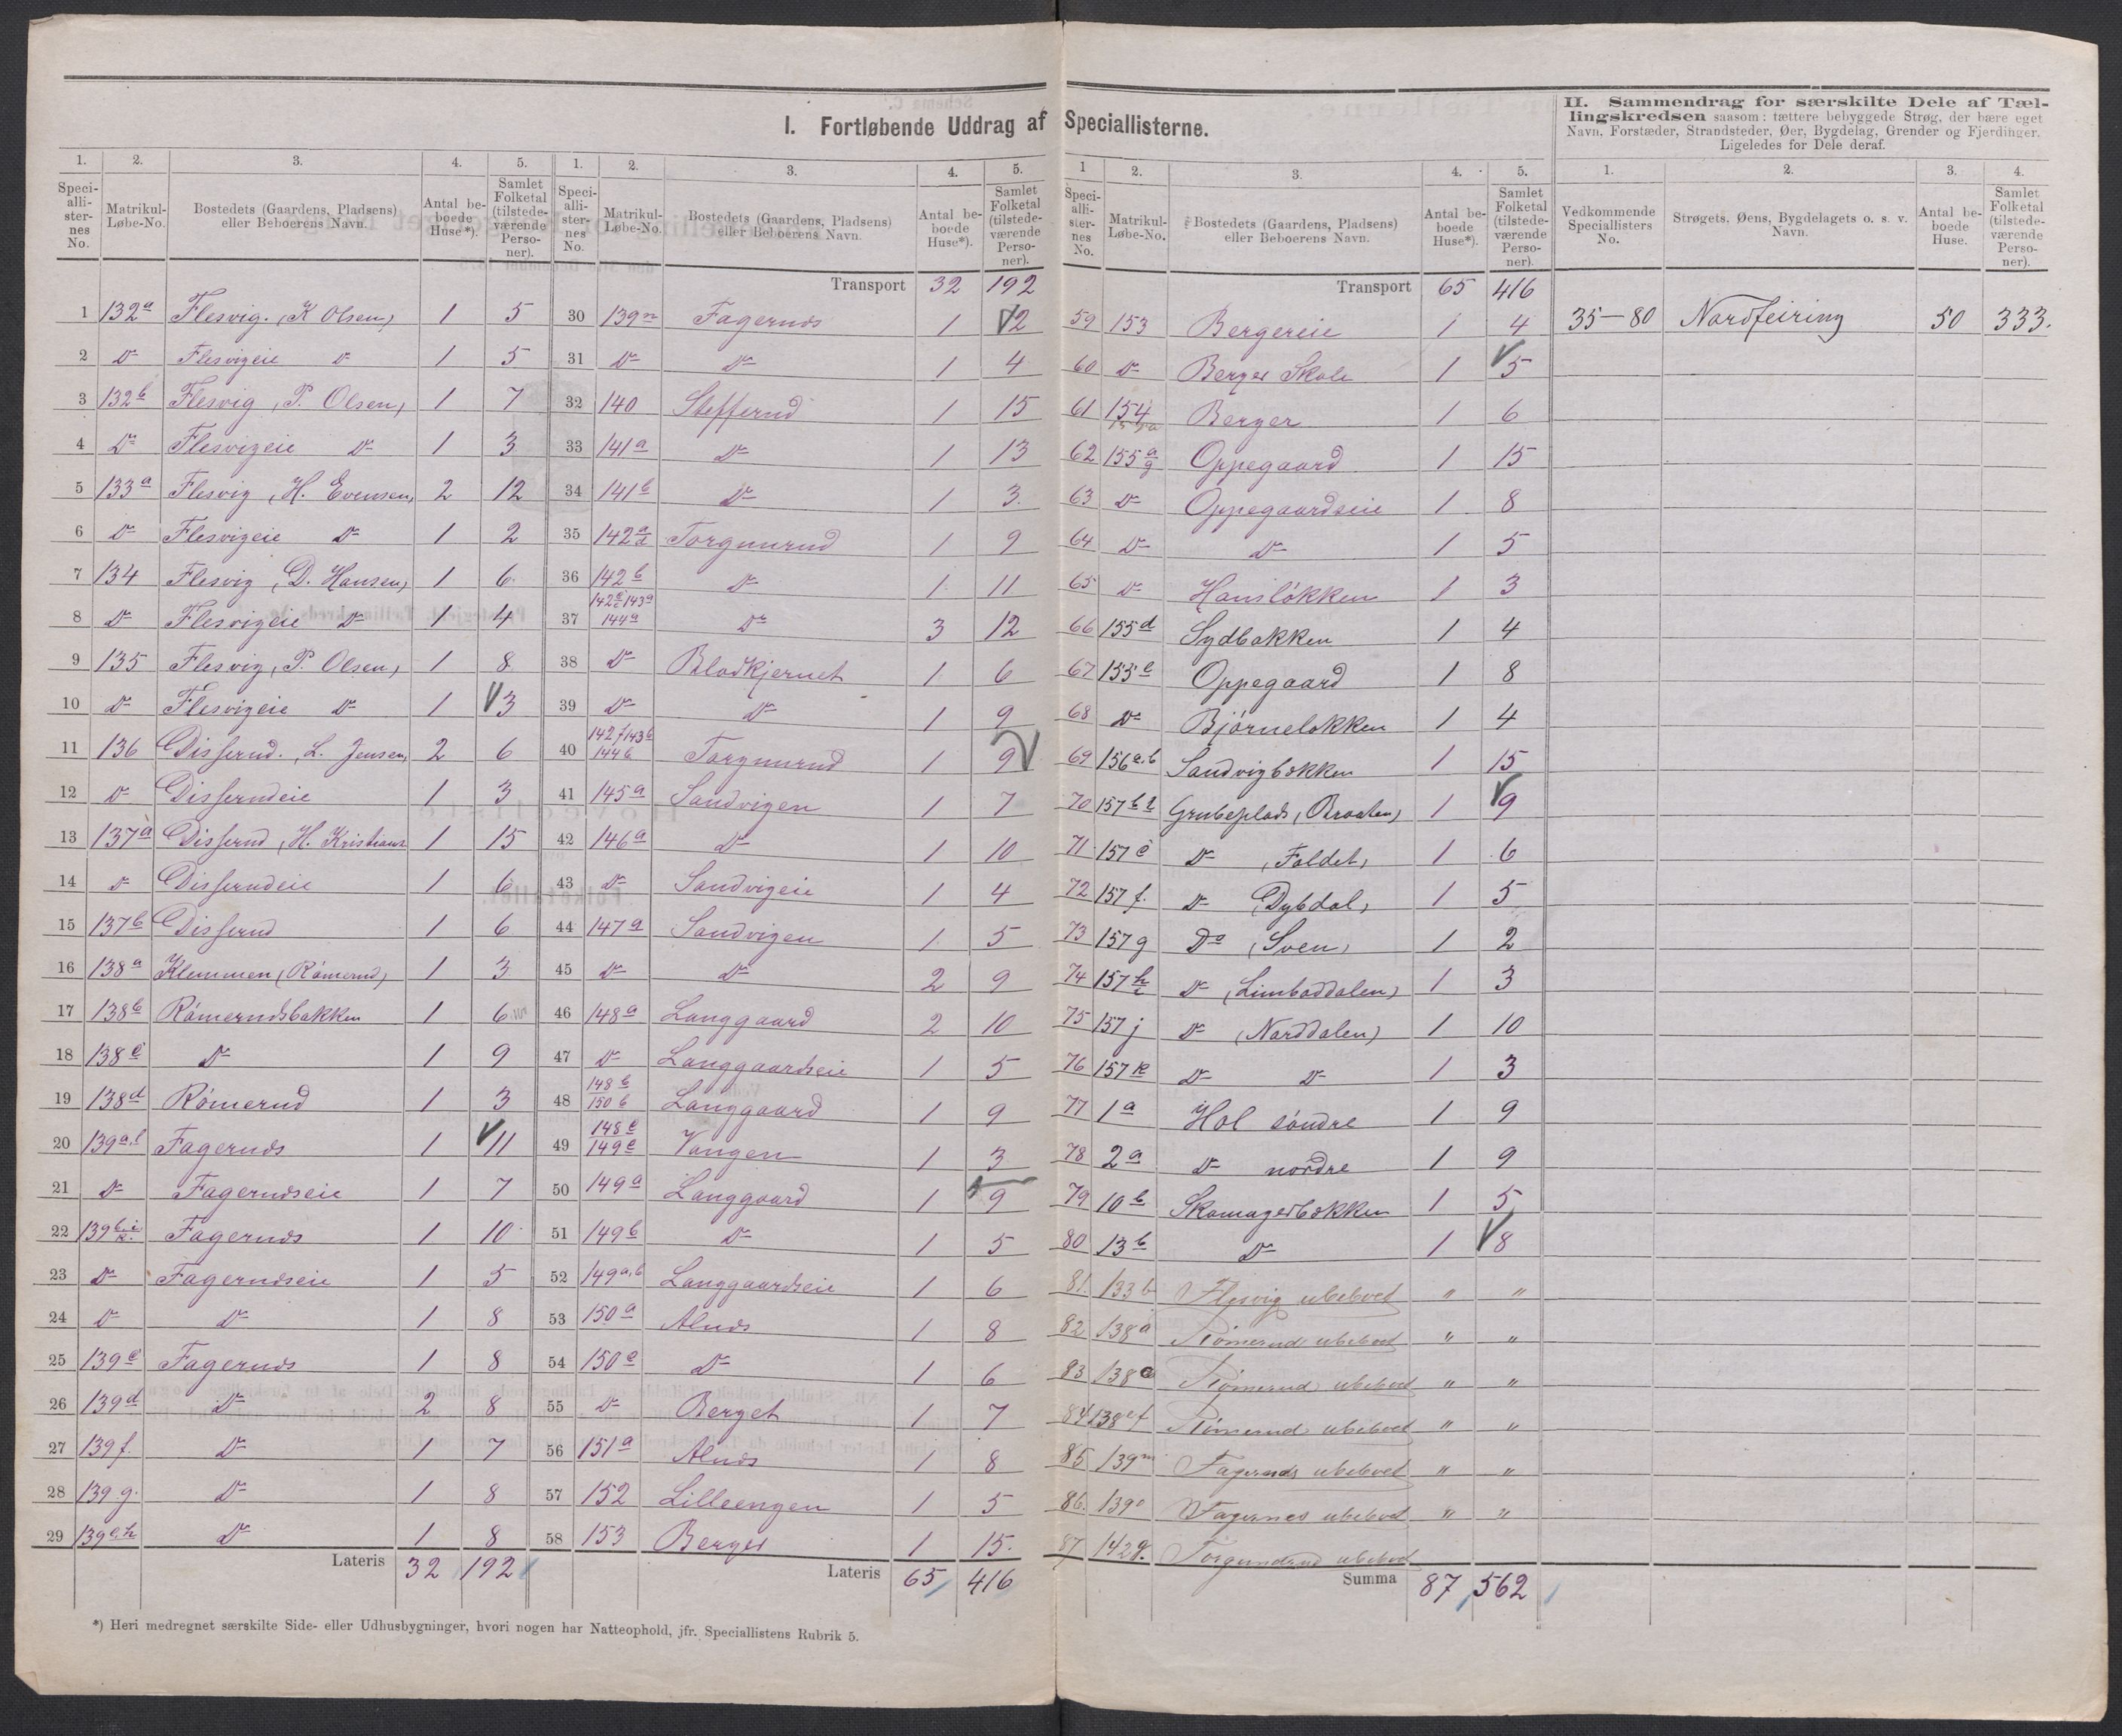 I. Fortløbende Uddrag af Speciallisterne.
II. Sammendrag for særskilte Dele af Tæl-
lingskredsen saasom: tættere bebyggede Strøg, der bære eget
Navn, Forstæder, Strandsteder, Øer, Bygdelag, Grender og Fjerdinger.
Ligeledes for Dele deraf.
1. 2. 3. 4. 5.
Speci-alli-ster-nes No. Matrikul-Løbe-No. Bostedets (Gaardens, Pladsens) eller Beboerens Navn. Antal be-boede Huse*). Samlet Folketal (tilstede-værende Perso-ner).
1 132a Flesvig. (K Olsen) 1 5
2 Do Flesvigeie Do 1 5
3 132b Flesvig (P. Olsen) 1 7
4 Do Flesvigeie Do 1 3
5 133a Flesvig (H. Evensen) 2 12
6 Do Flesvigeie Do 1 2
7 134 Flesvig (D. Hansen) 1 6
8 Do Flesvigeie Do 1 4
9 135 Flesvig (P. Olsen) 1 8
10 Do Flesvigeie Do 1 3
11 136 Disserud. (L. Jensen) 2 6
12 Do Disserudeie 1 3
13 137a Disserud (H. Kristians 1 15
14 Do Disserudeie 1 6
15 137b Disserud 1 6
16 138a Klemmen (Rómerud) 1 3
17 138b Rómerudsbakken 1 6
18 138c Do 1 9
19 138d Rómerud 1 3
20 139a,l Fagernæs 1 11
21 Do Fagernæseie 1 7
22 139b.i.k. Fagernæs 1 10
23 Do Fagernæseie 1 5
24 Do Do 1 8
25 139c Fagernæs 1 8
26 139d Do 2 8
27 139f. Do 1 7
28 139g. Do 1 8
29 139e.h Do 1 8
Lateris 32 192
1. 2. 3. 4. 5.
Speci-alli-ster-nes No. Matrikul-Løbe-No. Bostedets (Gaardens, Pladsens) eller Beboerens Navn. Antal be-boede Huse*). Samlet Folketal (tilstede-værende Perso-ner).
Transport 32 192
30 139n Fagernæs 1 2
31 Do Do 1 4
32 140 Stefferud 1 15
33 141a Do 1 13
34 141b Do 1 3
35 142a d Torgunrud 1 9
36 142b Do 1 11
37 142e 143a 144a Do 3 12
38 Do Blodkjernet 1 6
39 Do Do 1 9
40 142f 143b 144b Torgunrud 1 9
41 145a Sandvigen 1 7
42 146a Do 1 10
43 Do Sandvigeie 1 4
44 147a Sandvigen 1 5
45 Do Do 2 9
46 148a Langgaard 2 10
47 Do Langgaardseie 1 5
48 148b 150b Langgaard 1 9
49 148c 149c Vangen 1 3
50 149a Langgaard 1 9
51 149b Do 1 5
52 149a,b Langgaardseie 1 6
53 150a Alnæs 1 8
54 150c Do 1 6
55 Do Berget 1 7
56 151a Alnæs 1 8
57 152 Lilleengen 1 5
58 153 Berger 1 15
Lateris 65 416
1 2. 3. 4. 5.
Speci-alli-ster-nes No. Matrikul-Løbe-No. Bostedets (Gaardens, Pladsens) eller Beboerens Navn. Antal be-boede Huse*). Samlet Folketal (tilstede-værende Perso-ner).
Transport 65 416
59 153 Bergereie 1 4
60 Do Berger Skole 1 5
61 154 Berger 1 6
62 155a g Oppegaard 1 15
63 Do Oppegaardseie 1 8
64 Do Do 1 5
65 Do Hansløkken 1 3
66 155d Sydbakken 1 4
67 155e Oppegaard 1 8
68 Do Bjørneløkken 1 4
69 156a,b Sandvigbakken 1 15
70 157b Grubeplads (Braaten) 1 9
71 157e Do (Faldet) 1 6
72 157f. Do (Dybdal) 1 5
73 157g Do (Sven) 1 2
74 157h i Do (Limboddalen) 1 3
75 157j Do (Norddalen) 1 10
76 157k Do Do 1 3
77 1a Hol søndre 1 9
78 2a Do nordre 1 9
79 10b Skomagerbakken 1 5
80 13b Do 1 8
81. 133b Flesvig ubeboet " "
82 138a Rómerud ubeboet " "
83 138 Rómerud ubeboet " "
84 138ef Rómerud ubeboet " "
85 139m Fagernæs ubeboet " "
86. 139o Fagernes ubeboet " "
87 142g. Torgundrud ubeboet
Summa 87 562
1. 2. 3. 4.
Vedkommende Speciallisters No. Strøgets, Øens, Bygdelagets o. s. v. Navn. Antal be-boede Huse. Samlet Folketal (tilstede-værende Perso-ner).
35–80 Nordfeiring 50 333.
*) Heri medregnet særskilte Side- eller Udhusbygninger, hvori nogen har Natteophold, jfr. Speciallistens Rubrik 5.